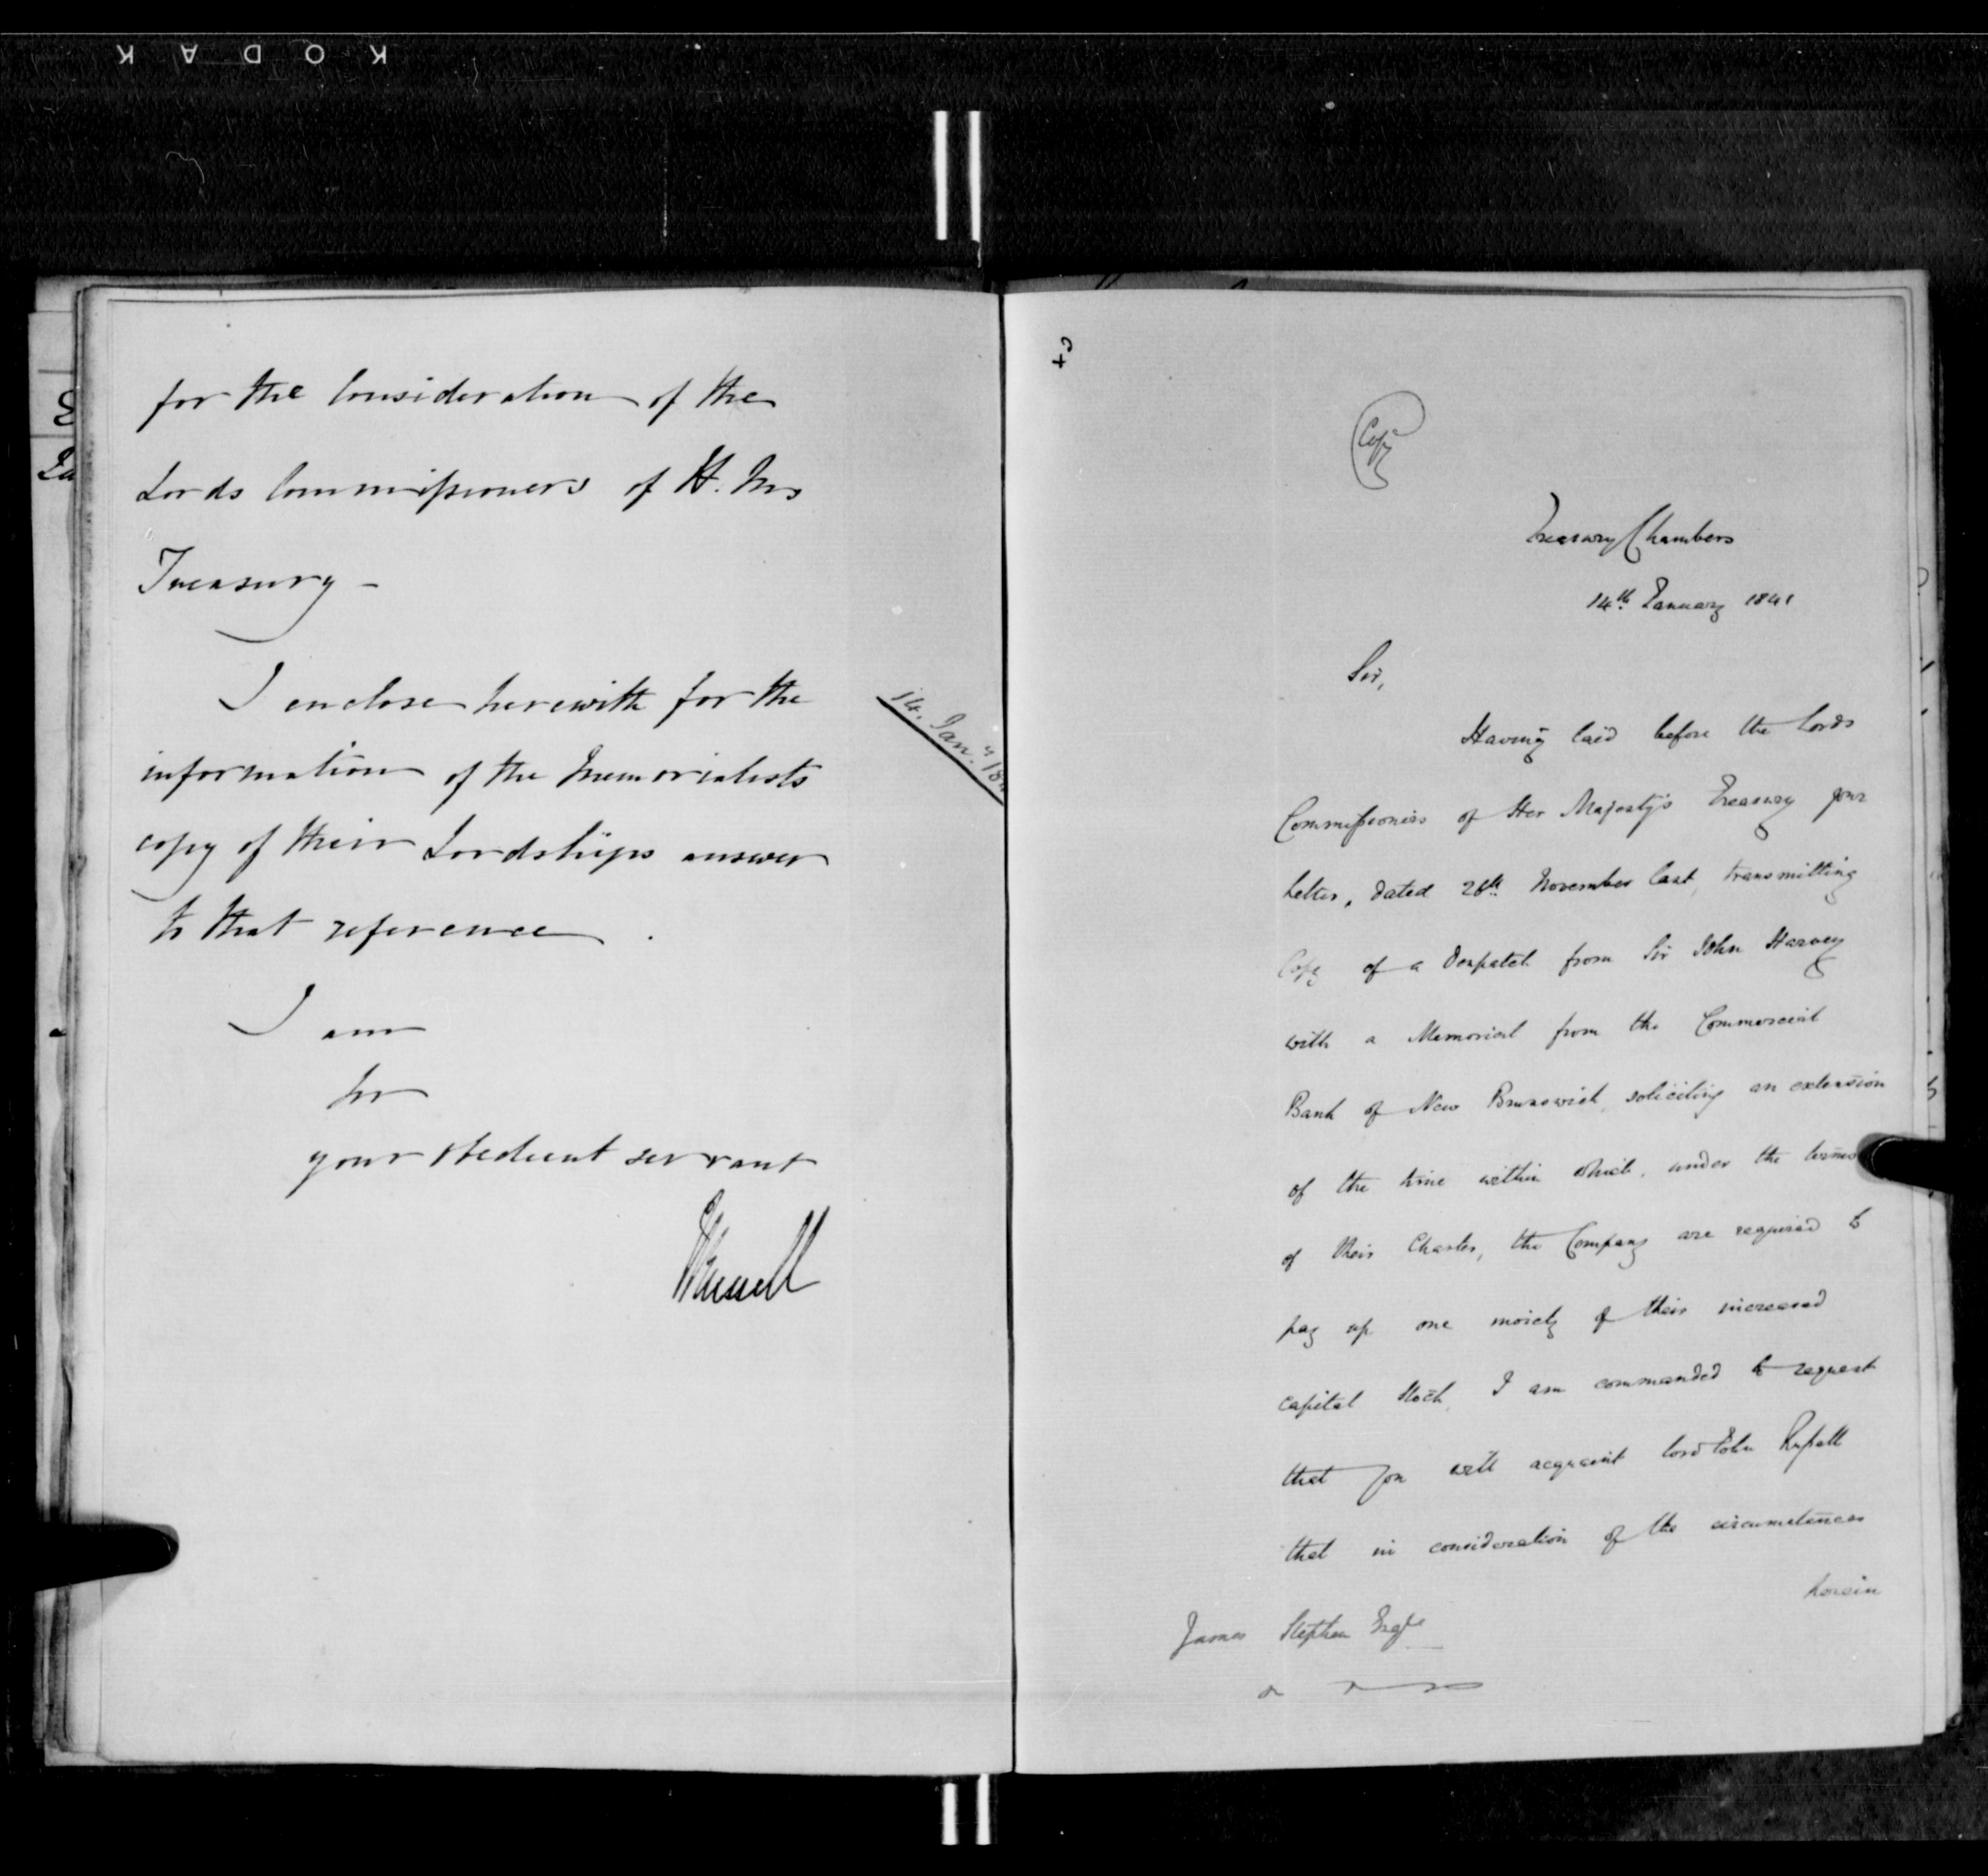 KODAK
for the Consideration of the
Lords Commissioners of H. Ms
Treasury -
I enclose herewith for the
information of the Memorialists
copy of their Lordships answer
to that reference.
14. Jany 184
I am
Sir
your obedient servant
JRussell
Copy
Treasury Chambers
14th January 1841
Sir,
Having laid before the Lords
Commissioners of Her Majesty's Treasury your
Letter, dated 26th November last, transmitting
Copy of a Despatch from Sir John Harvey
with a Memorial from the Commercial
Bank of New Brunswick, soliciting an extension
of the time within which, under the terms
of their Charter, the Company are required to
pay up one moiety of their increased
capital Stock, I am commanded to request
that you will acquaint Lord John Russell
that in consideration of the circumstances
herein
James Stephen Esqre